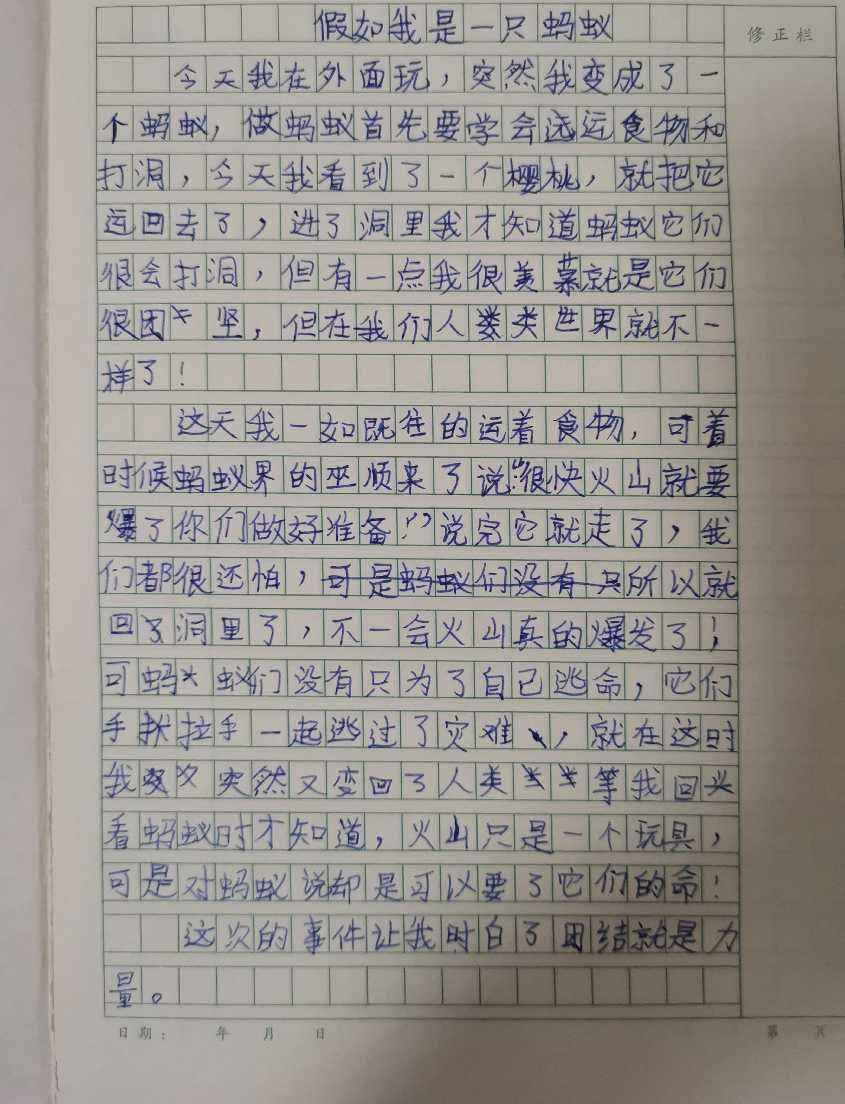 假如我是一只蚂蚁
修正栏
今天我在外面玩，突然我变成了一
个蚂蚁，做蚂蚁首先要学会远运食物和
打洞，今天我看到了一个樱桃，就把它
运回去了，进了洞里我才知道蚂蚁它们
很会打洞，但有一点我很羡慕就是它们
很团坚，但在我们人类世界就不一
样了！
这天我一如既往的运着食物，可着
时候蚂蚁界的巫顺来了说“很快火山就要
爆了你们做好准备！”说完它就走了，我
们都很还怕，可是蚂蚁们没有只所以就
回了洞里了，不一会火山真的爆发了！
可蚂蚁们没有只为了自己逃命，它们
手拉手一起逃过了灾难，就在这时
我突然又变回了人类等我回头
看蚂蚁时才知道，火山只是一个玩具，
可是对蚂蚁说却是可以要了它们的命！
这次的事件让我时白了团结就是力
量。
日期： 年 月 日
第 页